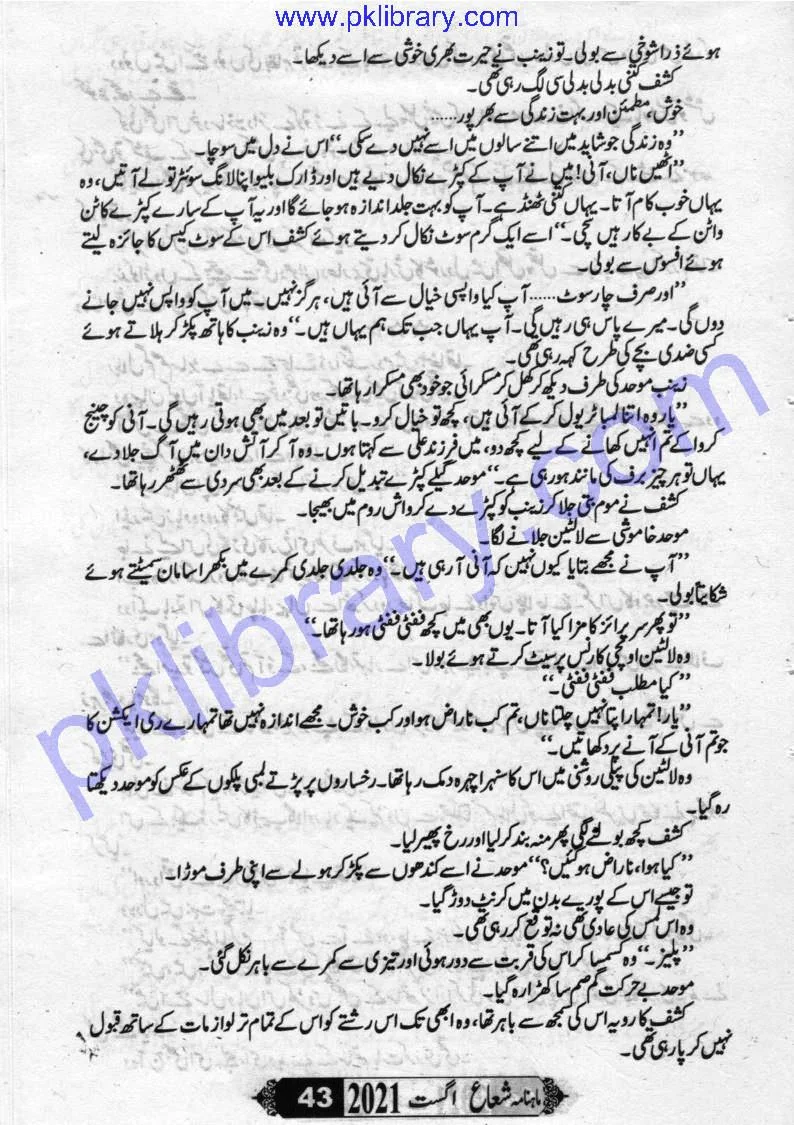 www.pklibrary.com
ہوئے ذرا شوخی سے بولی۔ تو زینب نے حیرت بھری خوشی سے اسے دیکھا۔
کشف کتنی بدلی بدلی سی لگ رہی تھی۔
خوش، مطمئن اور بہت زندگی سے بھرپور......
”وہ زندگی جو شاید میں اتنے سالوں میں اسے نہیں دے سکی۔“ اس نے دل میں سوچا۔
”اٹھیں ناں، آنی! میں نے آپ کے کپڑے نکال دیے ہیں اور ڈارک بلیو اپنا لانگ سوئٹر تو لے آتیں، وہ
یہاں خوب کام آتا۔ یہاں کتنی ٹھنڈ ہے۔ آپ کو بہت جلد اندازہ ہو جائے گا اور یہ آپ کے سارے کپڑے کاٹن
واٹن کے بے کار ہیں سچی۔“ اسے ایک گرم سوٹ نکال کر دیتے ہوئے کشف اس کے سوٹ کیس کا جائزہ لیتے
ہوئے افسوس سے بولی۔
”اور صرف چار سوٹ...... آپ کیا واپسی خیال سے آئی ہیں، ہرگز نہیں۔ میں آپ کو واپس نہیں جانے
دوں گی۔ میرے پاس ہی رہیں گی۔ آپ یہاں جب تک ہم یہاں ہیں۔“ وہ زینب کا ہاتھ پکڑ کر ہلاتے ہوئے
کسی ضدی بچے کی طرح کہہ رہی تھی۔
زینب موحد کی طرف دیکھ کر کھل کر مسکرائی جو خود بھی مسکرا رہا تھا۔
”یار وہ اتنا لمبا ٹریول کر کے آئی ہیں، کچھ تو خیال کرو۔ باتیں تو بعد میں بھی ہوتی رہیں گی۔ آنی کو چینج
کروا کے تم انہیں کھانے کے لیے کچھ دو، میں فرزند علی سے کہتا ہوں۔ وہ آ کر آتش دان میں آگ جلا دے،
یہاں تو ہر چیز برف کی مانند ہو رہی ہے۔“ موحد گیلے کپڑے تبدیل کرنے کے بعد بھی سردی سے ٹھٹھر رہا تھا۔
کشف نے موم بتی جلا کر زینب کو کپڑے دے کر واش روم میں بھیجا۔
موحد خاموشی سے لالٹین جلانے لگا۔
”آپ نے مجھے بتایا کیوں نہیں کہ آنی آ رہی ہیں۔“ وہ جلدی جلدی کمرے میں بکھرا سامان سمیٹتے ہوئے
شکایتاً بولی۔
”تو پھر سرپرائز کا مزا کیا آتا۔ یوں بھی میں کچھ ففٹی ففٹی ہو رہا تھا۔“
وہ لالٹین اونچی کارنس پر سیٹ کرتے ہوئے بولا۔
”کیا مطلب ففٹی ففٹی۔“
”یار! تمہارا پتا نہیں چلتا ناں، تم کب ناراض ہو اور کب خوش۔ مجھے اندازہ نہیں تھا تمہارے ری ایکشن کا
جو تم آنی کے آنے پر دکھاتیں۔“
وہ لالٹین کی پیلی روشنی میں اس کا سنہرا چہرہ دمک رہا تھا۔ رخساروں پر پڑتے لمبی پلکوں کے عکس کو موحد دیکھتا
رہ گیا۔
کشف کچھ بولنے لگی پھر منہ بند کر لیا اور رخ پھیر لیا۔
”کیا ہوا، ناراض ہو گئیں؟“ موحد نے اسے کندھوں سے پکڑ کر ہولے سے اپنی طرف موڑا۔
تو جیسے اس کے پورے بدن میں کرنٹ دوڑ گیا۔
وہ اس لمس کی عادی تھی نہ توقع کر رہی تھی۔
”پلیز۔“ وہ کسمسا کر اس کی قربت سے دور ہوئی اور تیزی سے کمرے سے باہر نکل گئی۔
موحد بے حرکت گم صم سا کھڑا رہ گیا۔
کشف کا رویہ اس کی سمجھ سے باہر تھا، وہ ابھی تک اس رشتے کو اس کے تمام تر لوازمات کے ساتھ قبول
نہیں کر پا رہی تھی۔
ماہنامہ شعاع اگست 2021 43
pklibrary.com